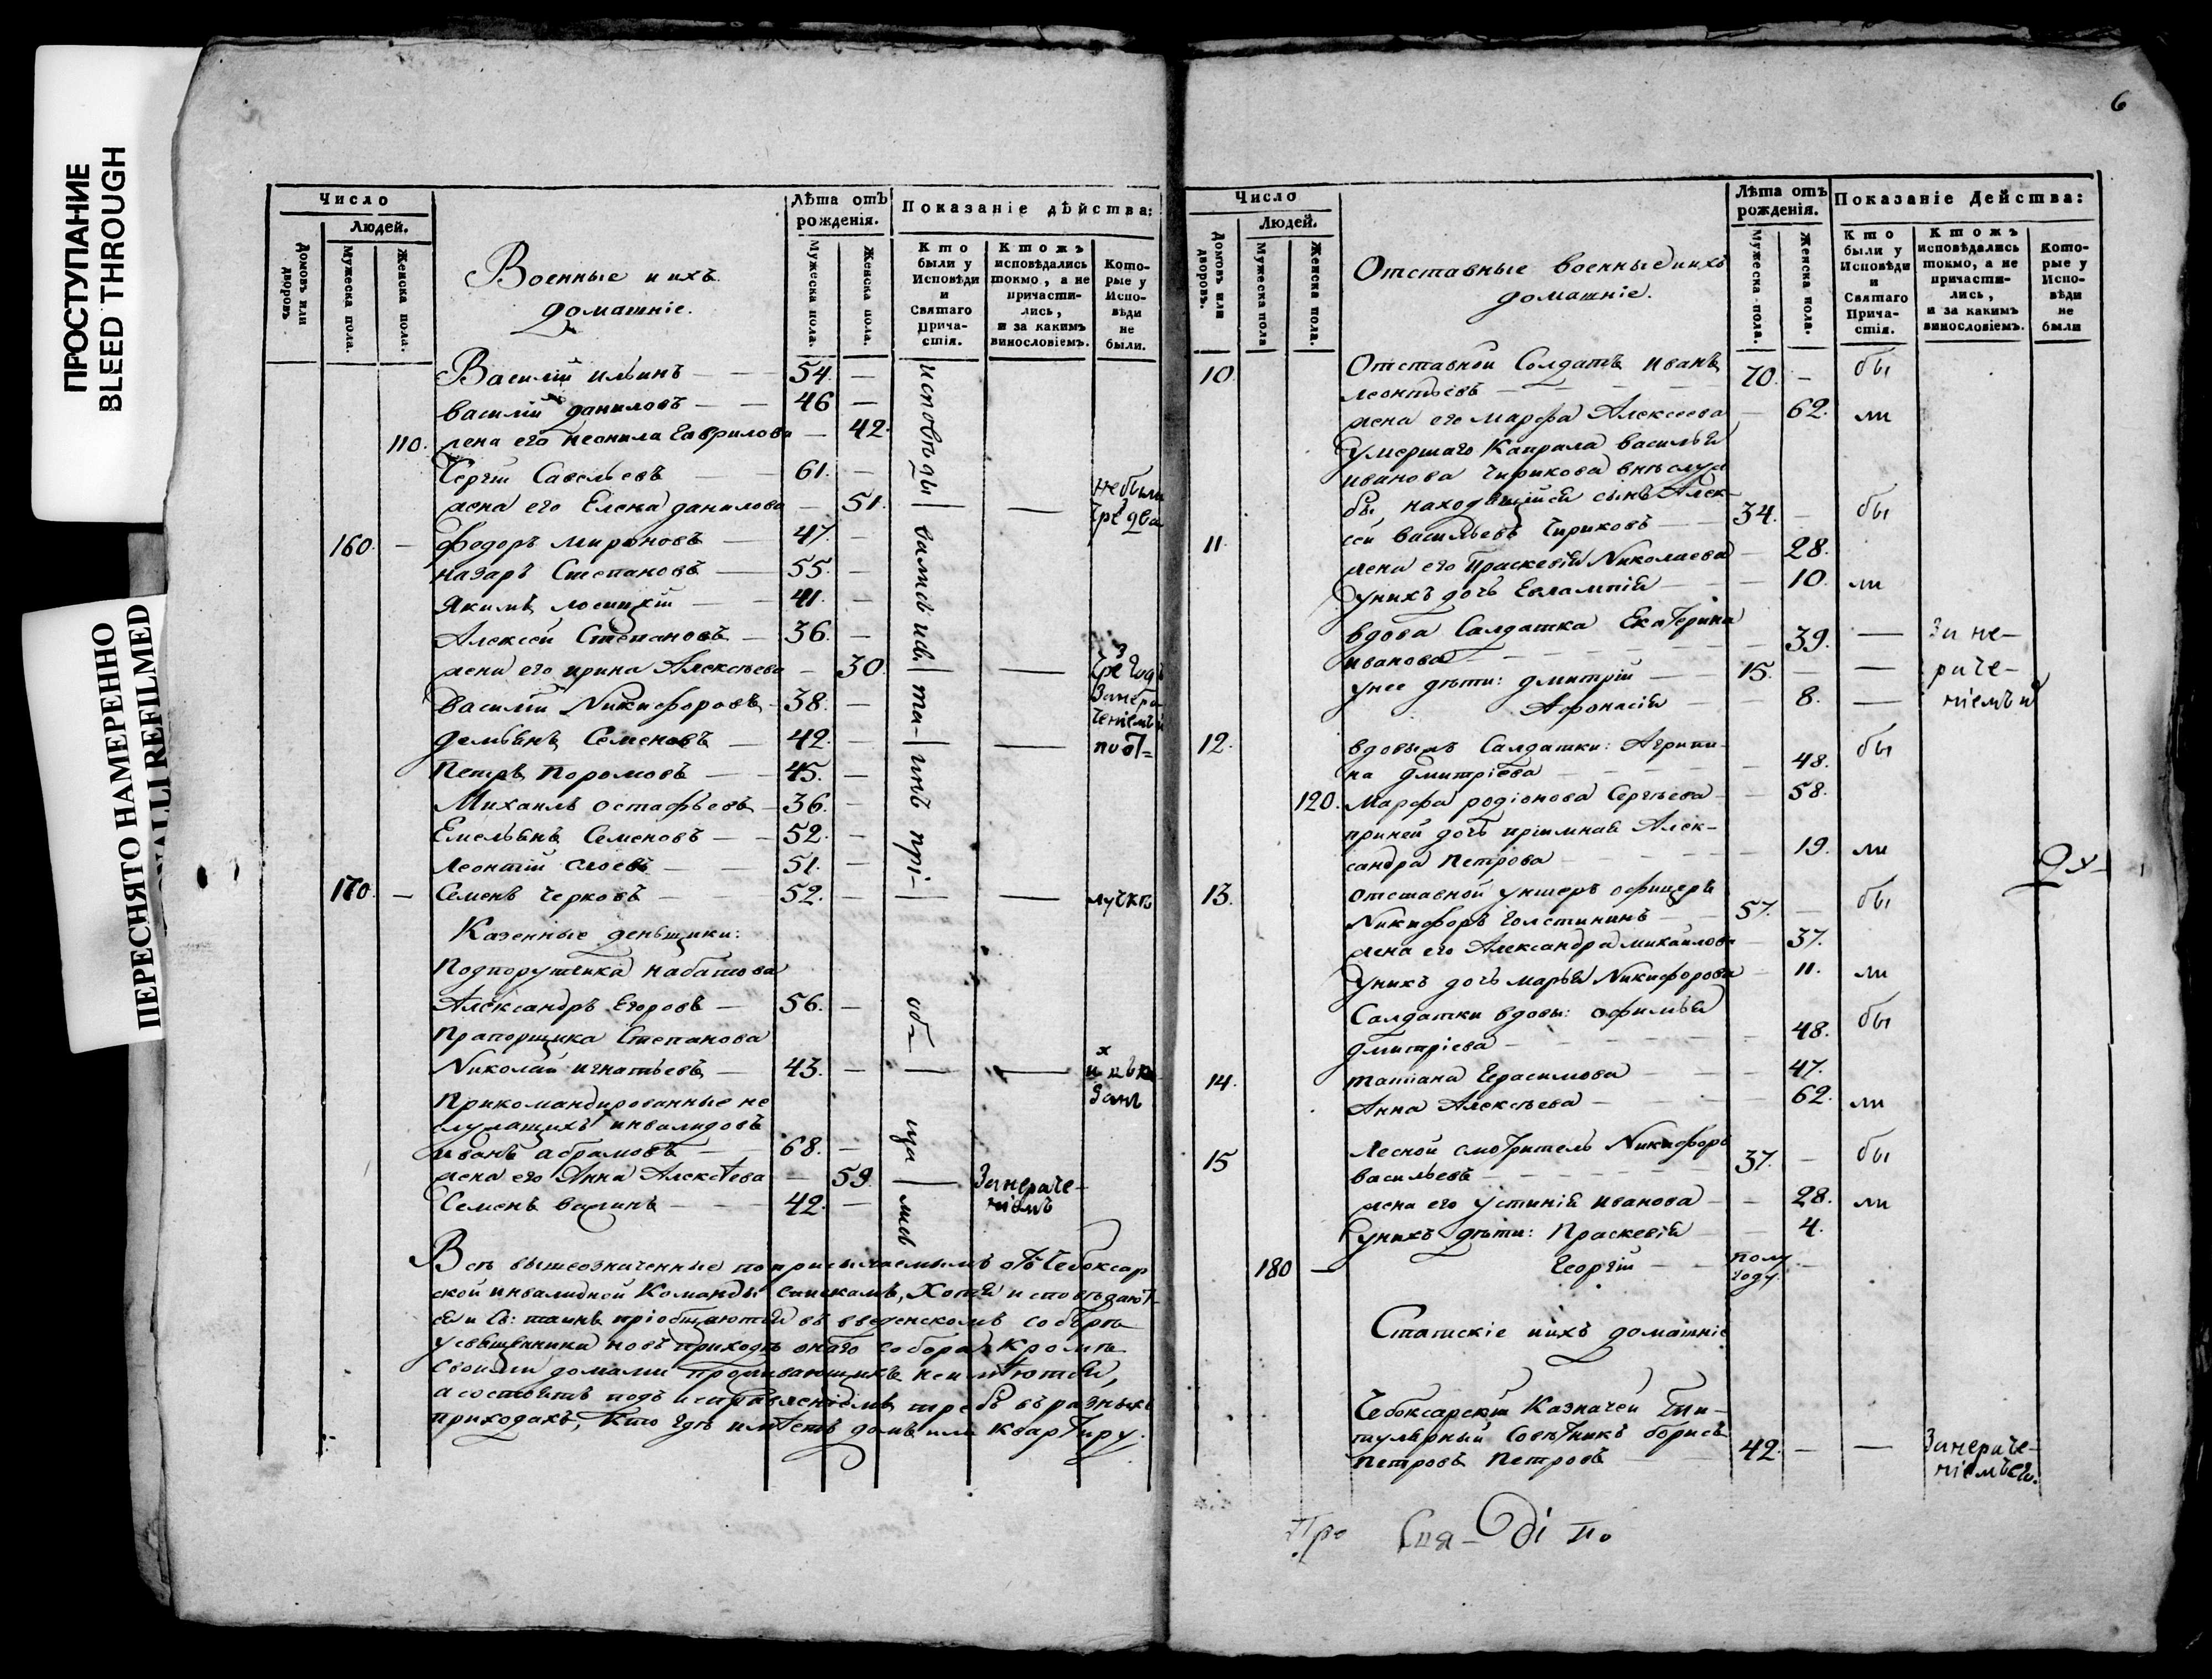 ПРОСТУПАНИЕ
BLEED THROUGH
ПЕРЕСНЯТО НАМЕРЕННО
Число
Людей.
Домовъ или дворовъ.
Мужеска пола.
Женска пола.
Военные и ихъ
домашніе.
Лѣта отъ
рожденія.
Мужеска пола.
Женска пола.
Показаніе дѣйства:
Кто
были у
Исповѣди
и
Святаго
Прича-
стія.
Ктожъ
исповѣдались
токмо, а не
причасти-
лись,
и за какимъ
винословіемъ.
Кото-
рые у
Испо-
вѣди
не
были.
Василій ильинъ — 54. —
василій даниловъ — 46 —
110. жена его неонила Гаврилова — 42.
Сергій Савельевъ 61. —
жена его Елена данилова — 51.
не были
160. — Федоръ мироновъ — 47. —
назаръ Степановъ — 55. —
Якимъ лосицкій — 41. —
Алексей Степановъ — 36. —
жена его ирина Алексѣева — 30.
Василій Никифоровъ 38. —
демьянъ Семеновъ — 42. —
Петръ Поромовъ — 45. —
Михаилъ остафьевъ 36. —
Емельянъ Семеновъ — 52. —
Леонтій слоевъ — 51. —
170. — Семенъ черковъ — 52. —
Казенные деньщики:
Подпоручика набатова
Александръ Егоровъ — 56. —
Прапорщика Степанова
Николай игнатьевъ — 43. —
Прикомандированные не
служащихъ инвалидовъ
иванъ абрамовъ — 68. —
жена его Анна Алексѣева — 59. — Занераче-
ніемъ
Семенъ вагинъ — 42. —
Всѣ вышеозначенные по присылаемымъ отъ Чебоксар
ской инвалидной Команды спискамъ, Хотя и исповѣдают-
ся и Св: таинъ пріобщаются въ введенскомъ соборѣ
у священника но въ приходѣ онаго собора Кромѣ
своими домами проживающихъ неимѣются,
а состоятъ подъ исправленіемъ требъ въ разныхъ
приходахъ, Кто гдѣ имѣетъ домъ или квартиру.
6
Число
Людей.
Домовъ или дворовъ.
Мужеска пола
Женска пола.
Отставные военные и ихъ
домашніе.
Лѣта отъ
рожденія.
Мужеска пола.
Женска пола.
Показаніе Действа:
Кто
были у
Исповѣди
и
Святаго
Прича-
стія.
Ктожъ
исповѣдались
токмо, а не
причасти-
лись,
и за какимъ
винословіемъ.
Кото-
рые у
Испо-
вѣди
не
были
10. Отставной Солдатъ иванъ
леонтьевъ 70. — бы
жена его марфа Алексеева — 62. ли
Умершаго Капрала василья
иванова Чирикова внѣ служ
бы находящійся сынъ Алек-
11. сей васильевъ Чириковъ — 34. — бы
жена его Праскевія Николаева — 28.
Унихъ дочь Евлампія — 10. ли
вдова Салдатка Екатерина
иванова — 39. — За не-
унее дѣти: дмитрій — 15. — раче-
Афонасія — 8. — ніемъ
12. вдовымъ Салдатки: Агрипи-
на дмитріева — 48. бы
120. Марфа родіонова Сергѣева — 58.
приней дочь пріимная Алек-
сандра Петрова — 19. ли
13. Отставной унтеръ офицеръ
Никифоръ Голстининъ — 57. — бы
жена его Александра михаилова — 37.
Унихъ дочь марья Никифорова — 11. ли
Салдатки вдовы: офимья
дмитріева — 48. бы
14. татіана Герасимова — 47.
Анна Алексѣева — 62. ли
15 Лесной смотритель Никифоръ
васильевъ — 37. — бы
жена его устинія иванова — 28. ли
унихъ дѣти: Праскевія — 4.
180 — Георгій — полу
году. —
Статскіе иихъ домашніе
Чебоксарскій Казначей Ти-
тулярный Советникъ борисъ
Петровъ Петровъ — 42. — — Занераче-
ніемъ
Про